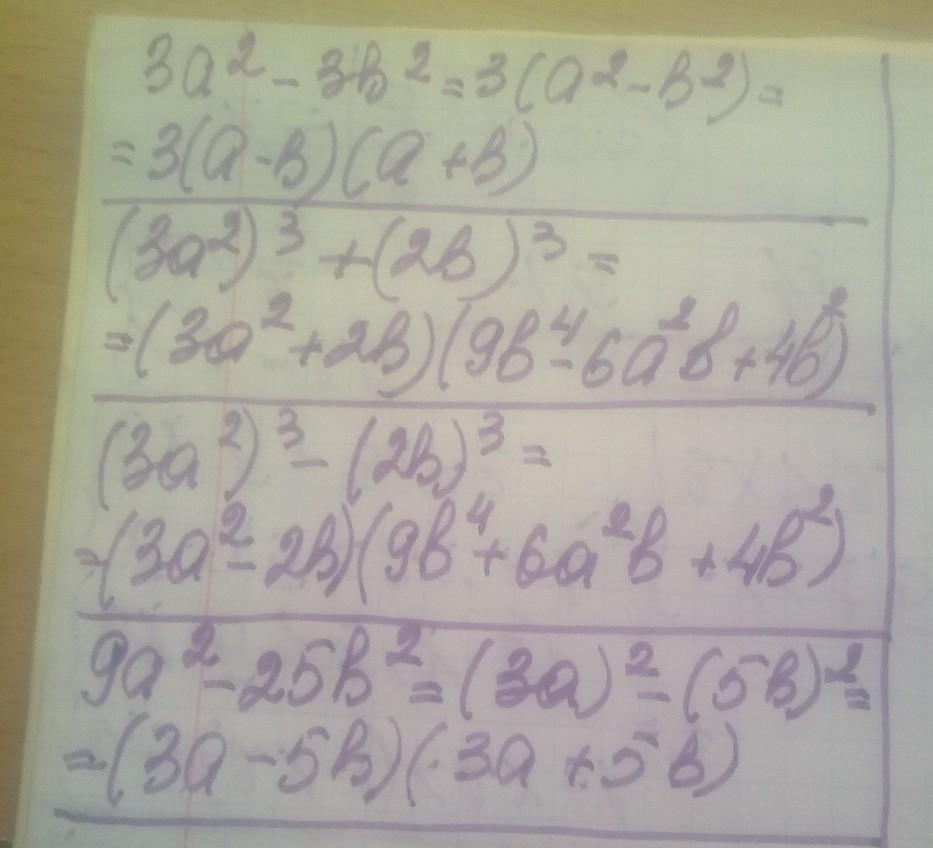 3a² - 3b² = 3(a² - b²) =
= 3(a - b)(a + b)
(3a²)³ + (2b)³ =
= (3a² + 2b)(9b⁴ - 6a²b + 4b²)
(3a²)³ - (2b)³ =
= (3a² - 2b)(9b⁴ + 6a²b + 4b²)
9a² - 25b² = (3a)² - (5b)² =
= (3a - 5b)(3a + 5b)